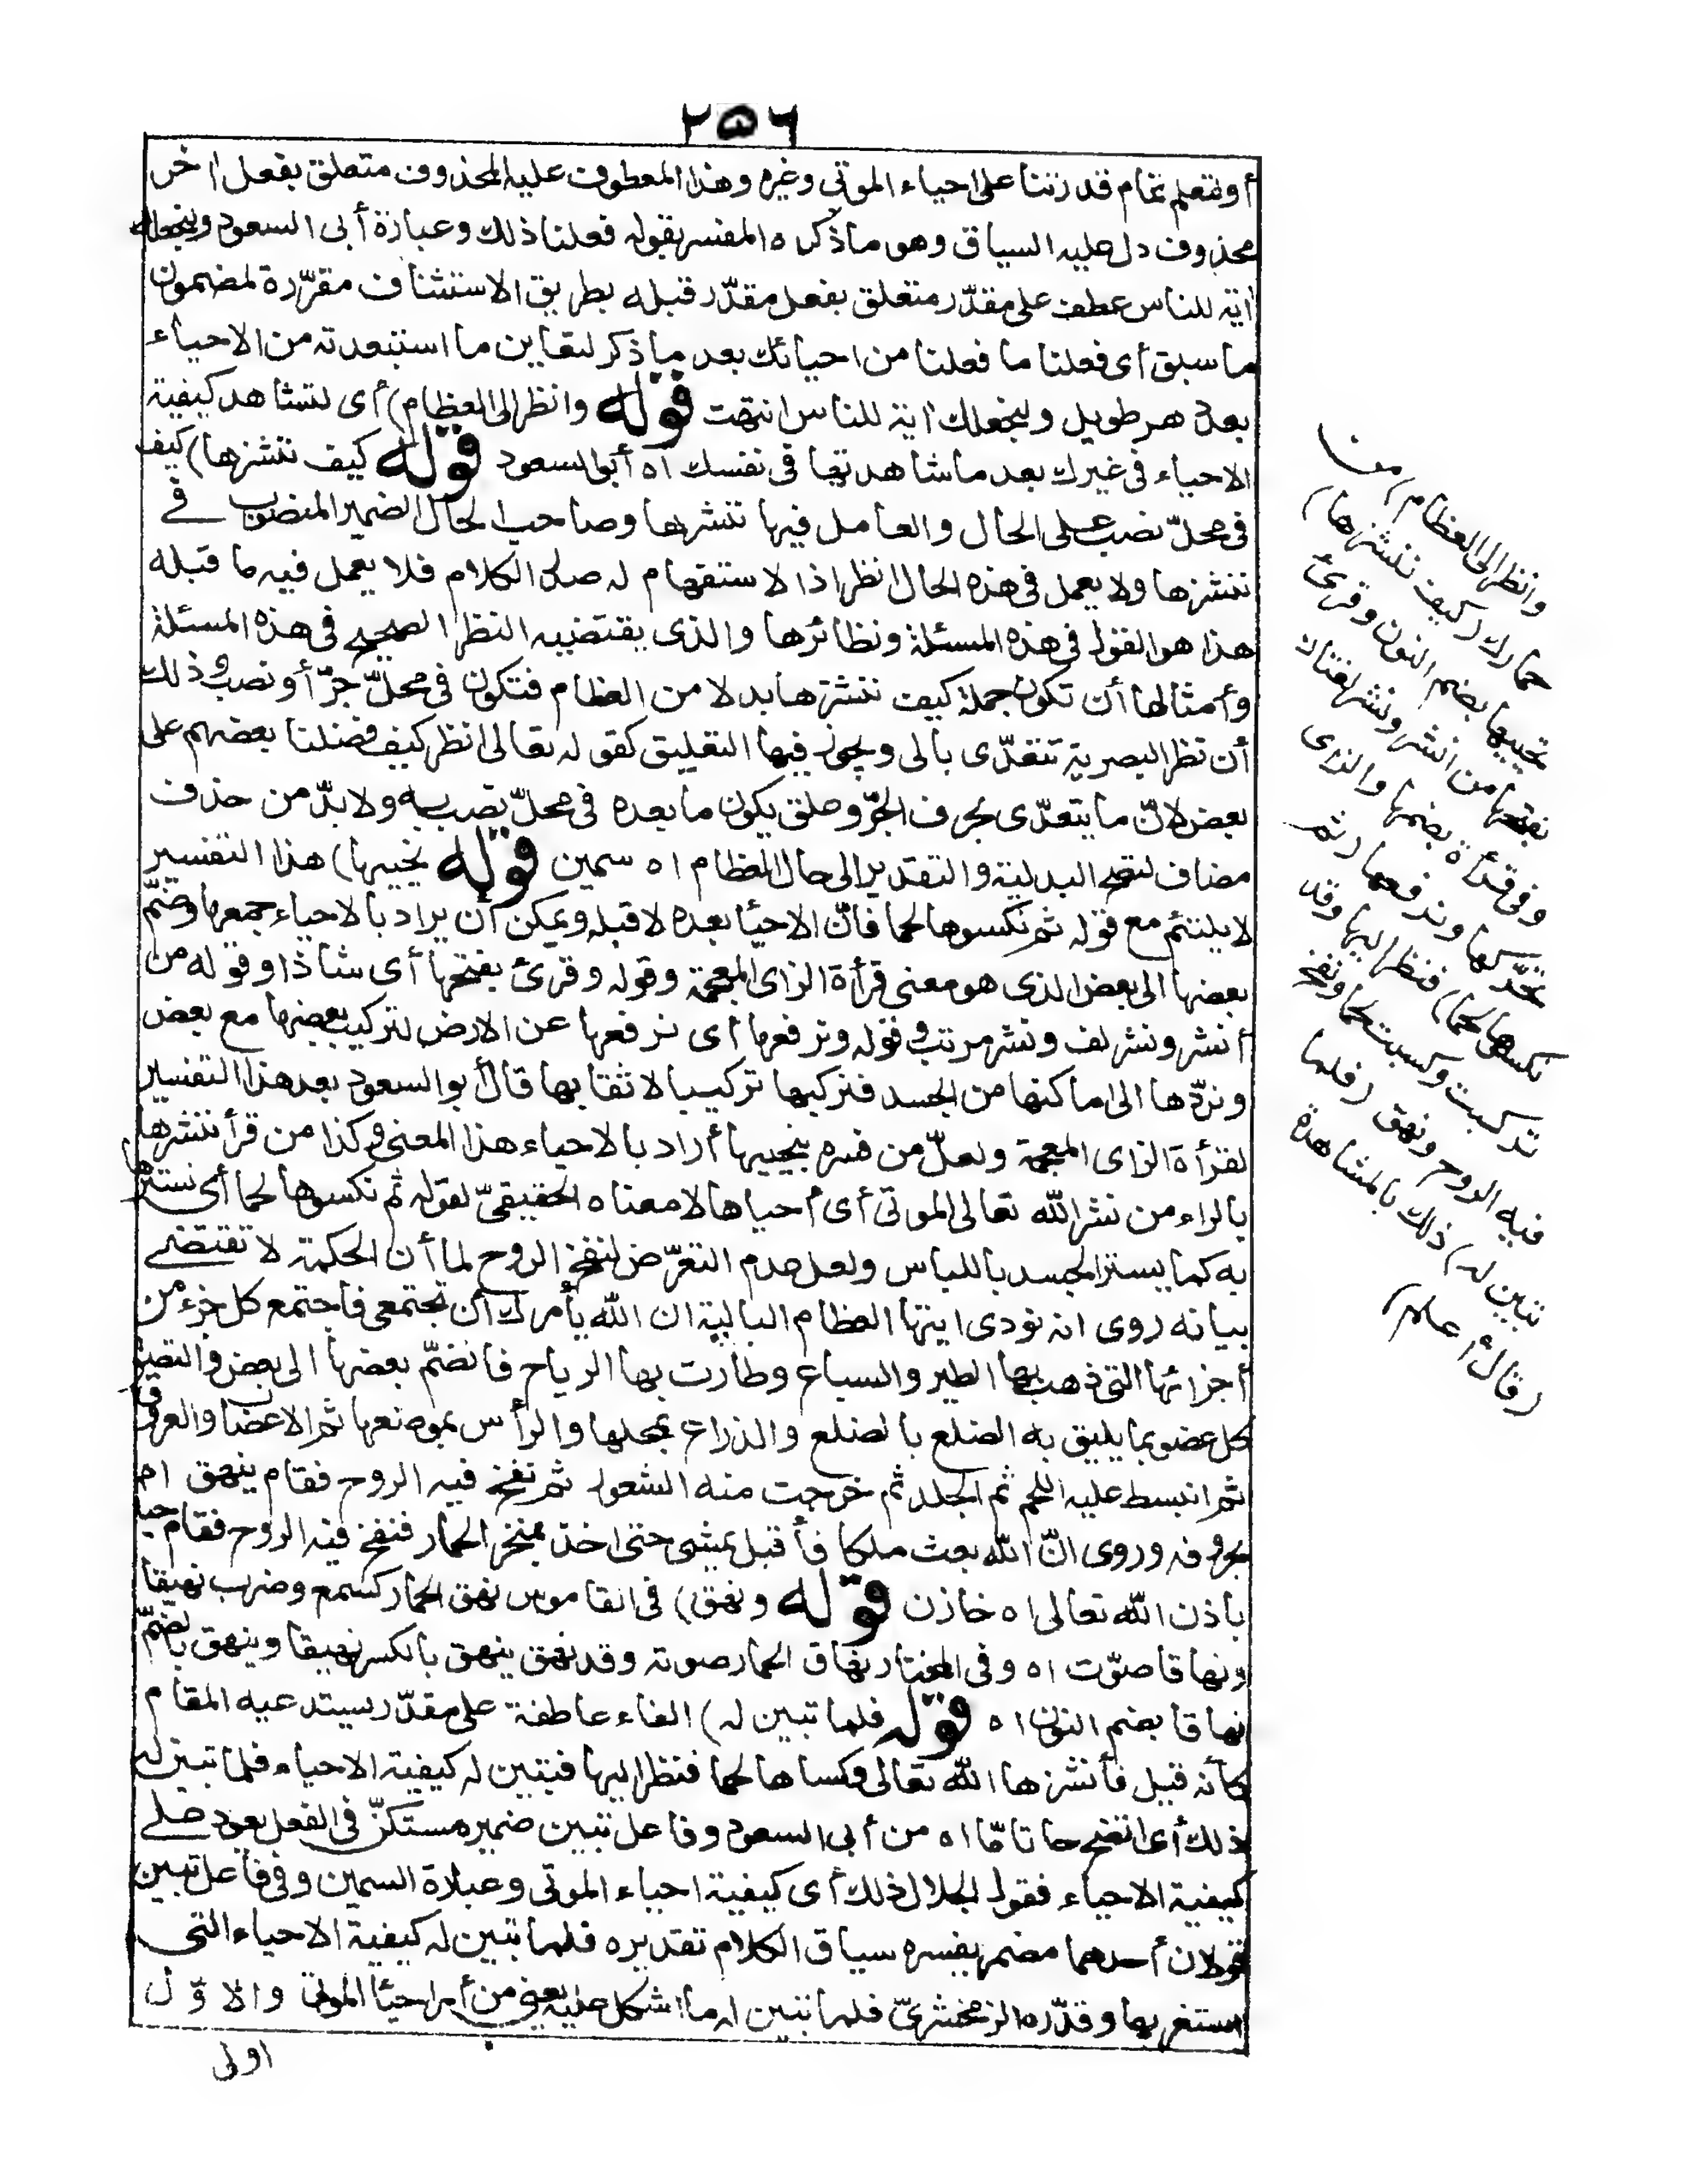 ٢٥٦
أو لتعلم تمام قدرتنا على احياء الموتى وغيره وهذا المعطوف عليه المحذوف متعلق بفعل اخر
محذوف دل عليه السياق وهو ما ذكره المفسر بقوله فعلنا ذلك وعبارة أبى السعود ولنجعلك
اية للناس عطف على مقدّر متعلق بفعل مقدّر قبله بطريق الاستئناف مقرّرة لمضمون
ما سبق أى فعلنا ما فعلنا من احيائك بعد ما ذكر لتعاين ما استبعدته من الاحياء
بعد دهر طويل ولنجعلك اية للناس انتهت قوله وانظر الى العظام) أى لتشاهد كيفية
الاحياء فى غيرك بعد ما شاهدتها فى نفسك اه أبو السعود قوله كيف ننشزها) كيف
فى محلّ نصب على الحال والعامل فيها ننشزها وصاحب الحال الضمير المنصوب فى
ننشزها ولا يعمل فى هذه الحال انظر اذ الاستفهام له صدر الكلام فلا يعمل فيه ما قبله
هذا هو القول فى هذه المسئلة ونظائرها والذى يقتضيه النظر الصحيح فى هذه المسئلة
وأمثالها أن تكون جملة كيف ننشزها بدلا من العظام فتكون فى محلّ جرّ أو نصب وذلك
أن نظر البصرية تتعدّى بالى ويجوز فيها التعليق كقوله تعالى انظر كيف فضلنا بعضهم على
بعض لانّ ما يتعدّى بحرف الجرّ وعلق يكون ما بعده فى محلّ نصب به ولا بدّ من حذف
مضاف لتصح البدلية والتقدير الى حال العظام اه سمين قوله نحييها) هذا التفسير
لا يلتئم مع قوله ثم نكسوها لحما فانّ الاحيا بعده لا قبله ويمكن أن يراد بالاحياء جمعها وضمّ
بعضها الى بعض الذى هو معنى قرأة الزاى المعجمة وقوله وقرئ بفتحها أى شاذا وقوله من
أنشر ونشر لف ونشر مرتب وقوله ونرفعها أى نرفعها عن الارض لتركيب بعضها مع بعض
ونردّها الى اماكنها من الجسد فنركبها تركيبا لائقا بها قال أبو السعود بعد هذا التفسير
لقرأة الزاى المعجمة ولعلّ من فسره بنحييها أراد بالاحياء هذا المعنى وكذا من قرأ ننشرها
بالراء من نشر الله تعالى الموتى أى أحياها لا معناه الحقيقىّ لقوله ثم نكسوها لحما أى نسترها
به كما يستر الجسد باللباس ولعل عدم التعرّض لنفخ الروح لما أن الحكمة لا تقتضى
بيانه روى انه نودى ايتها العظام البالية ان الله يأمرك أن تجتمعى فاجتمع كل جزء من
أجزائها التى ذهب بها الطير والسباع وطارت بها الرياح فانضمّ بعضها الى بعض والتصق
كل عضو بما يليق به الضلع بالضلع والذراع بمحلها والرأس بموضعها ثم الاعضا والعروق
ثم انبسط عليه اللحم ثم الجلد ثم خرجت منه الشعور ثم نفخ فيه الروح فقام ينهق اه
بحروفه وروى انّ الله بعث ملكا فأقبل يمشى حتى اخذ بمنخر الحمار فنفخ فيه الروح فقام حيا
باذن الله تعالى اه خازن قوله ونهق) فى القاموس نهق الحمار كسمع وضرب نهيقا
ونهاقا صوّت اه وفى المختار نهاق الحمار صوته وقد نهق ينهق بالكسر نهيقا وينهق بالضمّ
نهاقا بضم النون اه قوله فلما تبين له) الفاء عاطفة على مقدّر يستدعيه المقام
كأنه قيل فأنشزها الله تعالى وكساها لحما فنظر اليها فتبين له كيفية الاحياء فلما تبين له
ذلك أى اتضح اتضاحا تامّا اه من أبى السعود وفاعل تبين ضمير مستكنّ فى الفعل يعود على
كيفية الاحياء فقول الجلال ذلك أى كيفية احياء الموتى وعبارة السمين وفى فاعل تبين
قولان أحدهما مضمر يفسره سياق الكلام تقديره فلما تبين له كيفية الاحياء التى
استغربها وقدّره الزمخشرىّ فلما تبين له ما اشكل عليه يعنى من أمر احيا الموتى والاوّل
اولى
وانظر الى العظام) من
حمارك (كيف ننشزها)
نحييها بضم النون وقرئ
بفتحها من انشر ونشر لغتان
وفى قرأة بضمها والزاى
نحرّكها ونرفعها (ثم
نكسوها لحما) فنظر اليها وقد
تركبت وكسيت لحما ونفخ
فيه الروح ونهق (فلما
تبين له) ذلك بالمشاهدة
(قال أعلم)